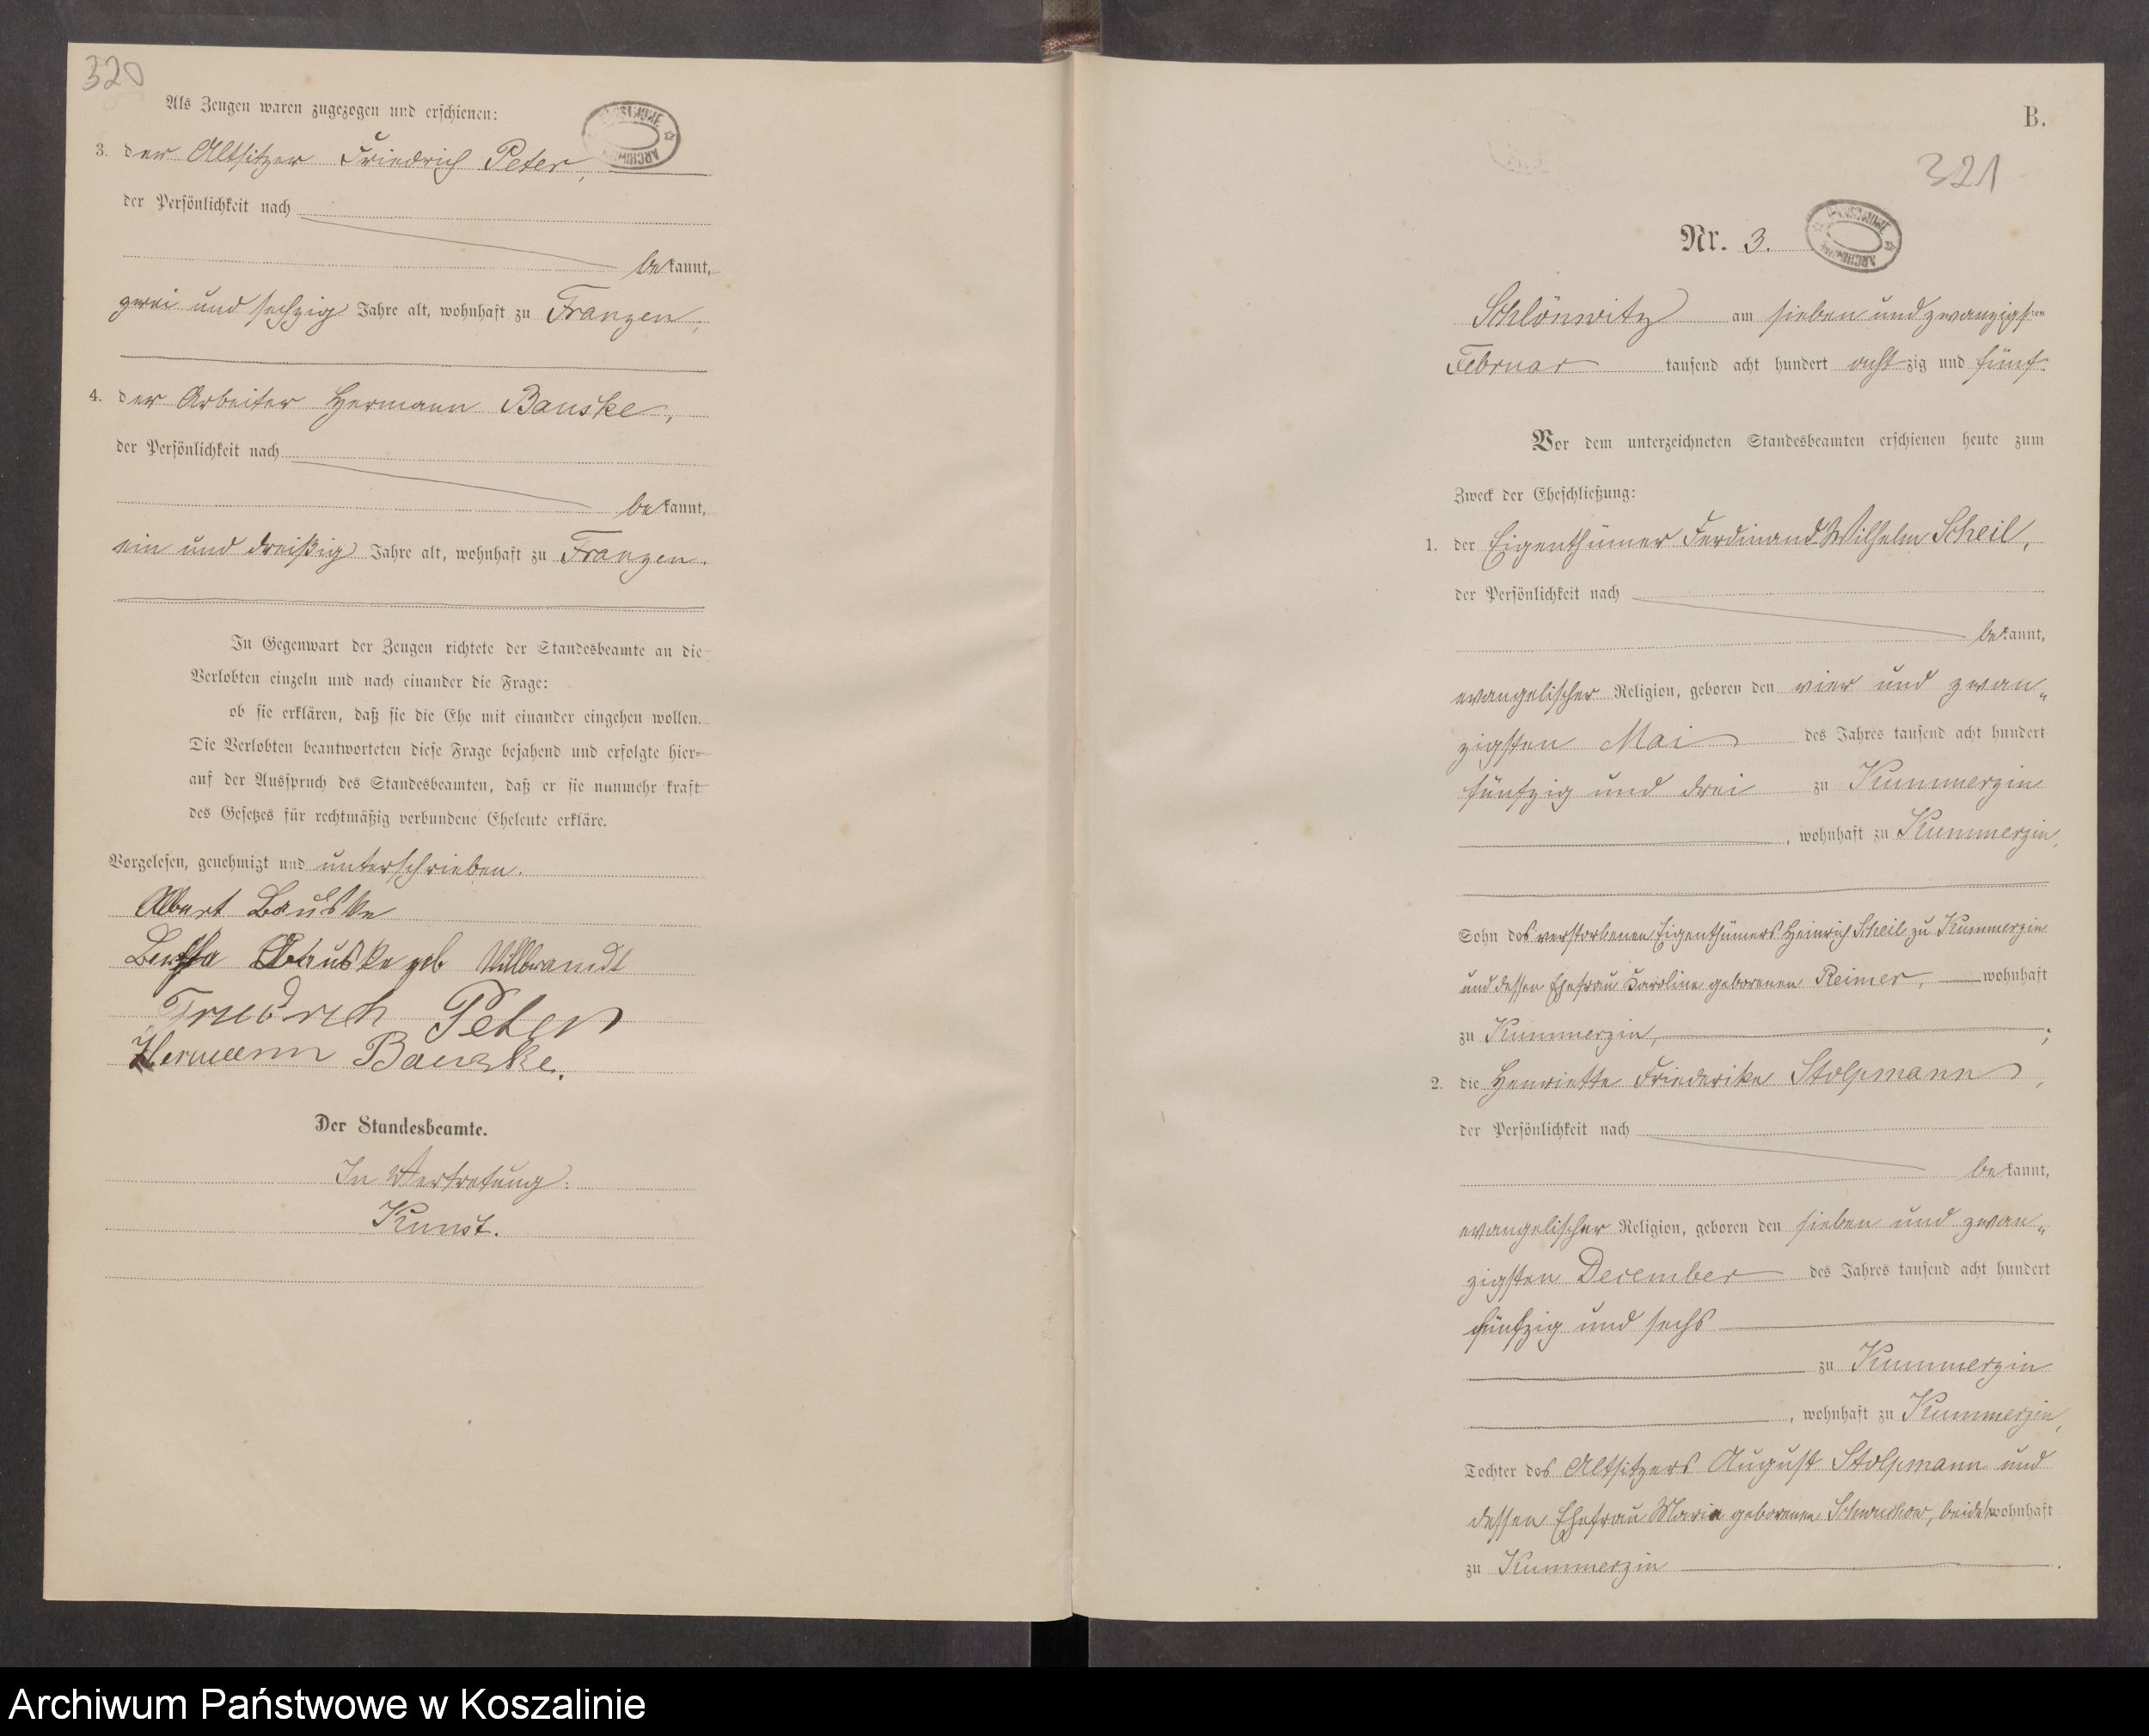 320
Als Zeugen waren zugezogen und erschienen:
3. der Altsitzer Friedrich Peter,
der Persönlichkeit nach
bekannt,
zwei und sechzig Jahre alt, wohnhaft zu Franzen,
4. der Arbeiter Hermann Bauske,
der Persönlichkeit nach
bekannt,
ein und dreißig Jahre alt, wohnhaft zu Franzen.
In Gegenwart der Zeugen richtete der Standesbeamte an die
Verlobten einzeln und nach einander die Frage:
ob sie erklären, daß sie die Ehe mit einander eingehen wollen.
Die Verlobten beantworteten diese Frage bejahend und erfolgte hier-
auf der Ausspruch des Standesbeamten, daß er sie nunmehr kraft
des Gesetzes für rechtmäßig verbundene Eheleute erkläre.
Vorgelesen, genehmigt und unterschrieben.
Albert Bauske
Bertha Bauske geb Willbrandt
Friedrich Peter
Hermann Bauske.
Der Standesbeamte.
In Vertretung.
Kunst.
B.
321
Nr. 3.
ARCHIWUM
Schlönwitz am sieben und zwanzigsten
Februar tausend acht hundert achtzig und fünf.
Vor dem unterzeichneten Standesbeamten erschienen heute zum
Zweck der Eheschließung:
1. der Eigenthümer Ferdinand Wilhelm Scheil,
der Persönlichkeit nach
bekannt,
evangelischer Religion, geboren den vier und zwan-
zigsten Mai des Jahres tausend acht hundert
fünfzig und drei zu Kummerzin
, wohnhaft zu Kummerzin,
Sohn des verstorbenen Eigenthümers Heinrich Scheil zu Kummerzin
und dessen Ehefrau Karoline geborenen Reimer, wohnhaft
zu Kummerzin, ;
2. die Henriette Friederike Stolpmann,
der Persönlichkeit nach
bekannt,
evangelischer Religion, geboren den sieben und zwan-
zigsten December des Jahres tausend acht hundert
fünfzig und sechs
zu Kummerzin
, wohnhaft zu Kummerzin,
Tochter des Altsitzers August Stolpmann und
dessen Ehefrau Marie geborenen, beide wohnhaft
zu Kummerzin .
Archiwum Państwowe w Koszalinie